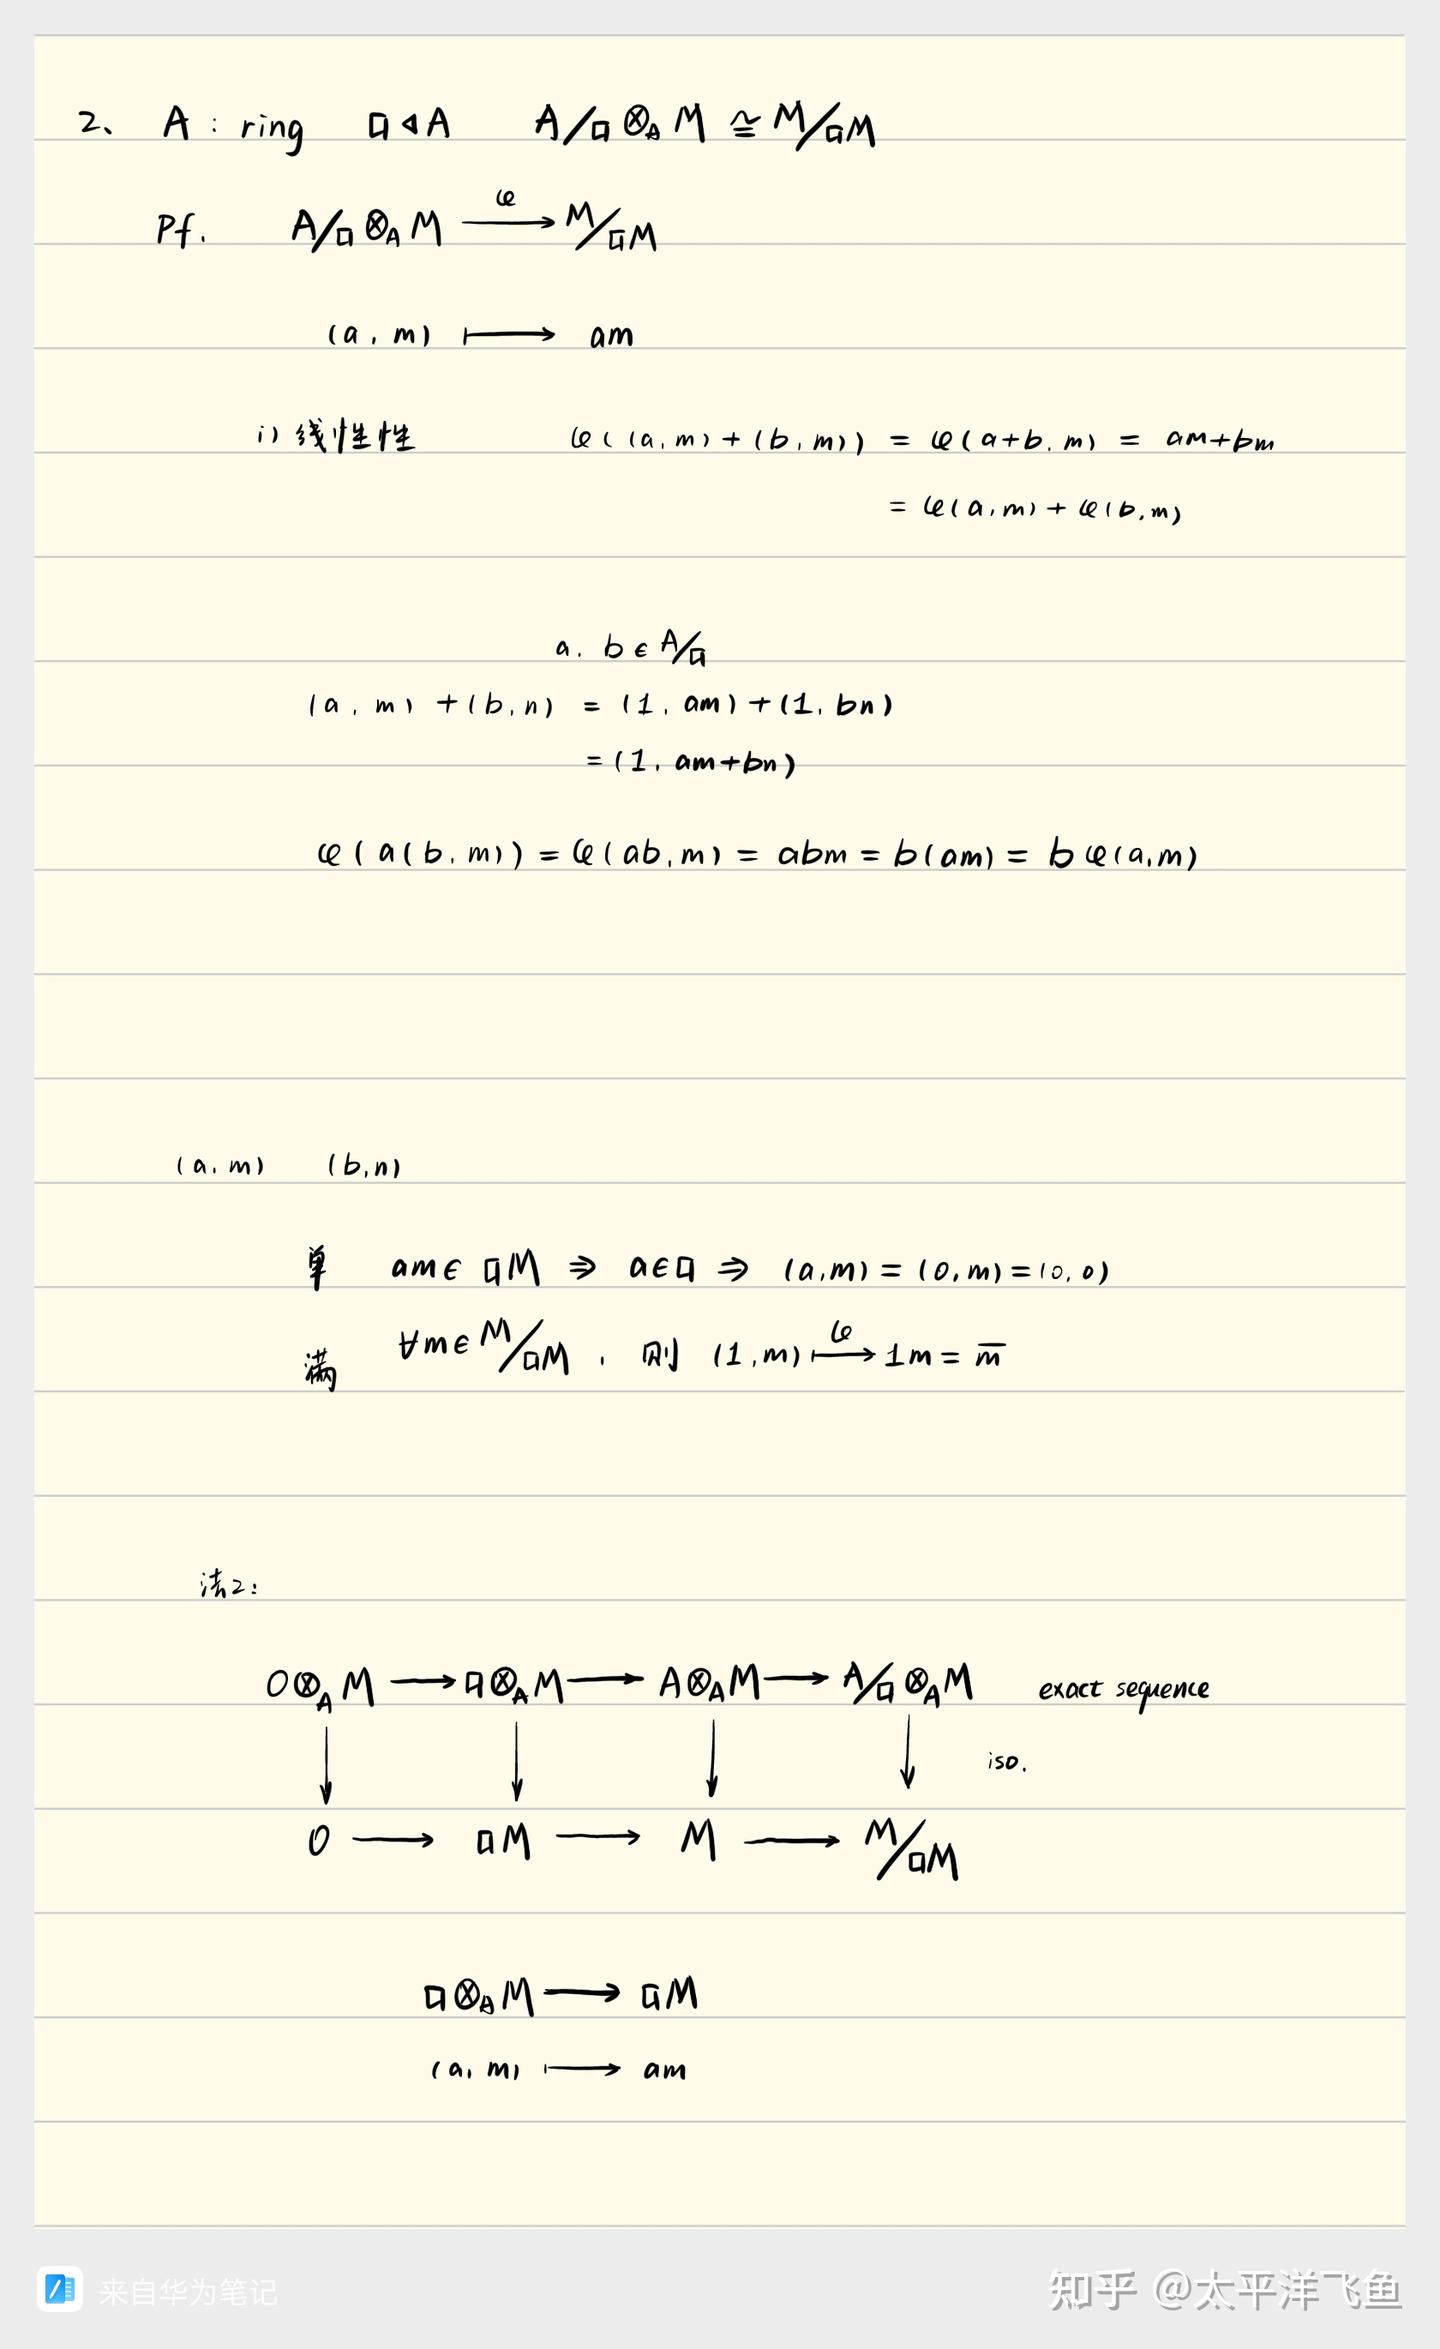 2、 A : ring 𝔞 ⊲ A A/𝔞 ⊗_A M ≅ M/𝔞M
Pf. A/𝔞 ⊗_A M —φ→ M/𝔞M
(a, m) ⟼ am
i) 线性性 φ((a,m)+(b,m)) = φ(a+b, m) = am+bm
= φ(a,m)+φ(b,m)
a, b ∈ A/𝔞
(a, m) + (b, n) = (1, am) + (1, bn)
= (1, am+bn)
φ(a(b, m)) = φ(ab, m) = abm = b(am) = bφ(a,m)
(a, m) (b, n)
单 am ∈ 𝔞M ⇒ a ∈ 𝔞 ⇒ (a,m) = (0,m) = (0,0)
满 ∀m ∈ M/𝔞M , 则 (1, m) ⟼^φ 1m = m̄
法2:
0⊗_A M → 𝔞⊗_A M → A⊗_A M → A/𝔞 ⊗_A M exact sequence
↓ ↓ ↓ ↓ iso.
0 → 𝔞M → M → M/𝔞M
𝔞⊗_A M → 𝔞M
(a, m) ⟼ am
来自华为笔记
知乎 @太平洋飞鱼